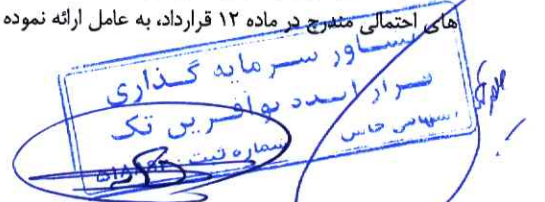 های احتمالی مندرج در ماده ۱۲ قرارداد، به عامل ارائه نموده
مشاور سرمایه گذاری
نوآفرین تک
سهامی خاص
شماره ثبت